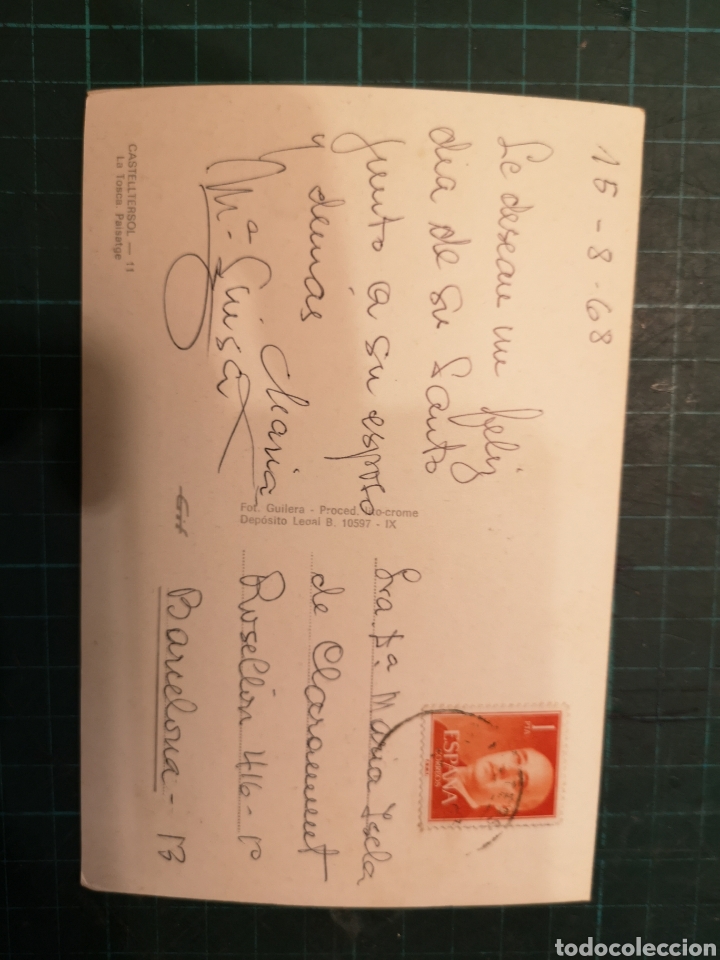 15-8-68
Le desean un feliz
dia de su Santo
junto a su esposo
y demás
Maria
Mª Luisa
CASTELLTERSOL — 11
La Tosca. Paisatge
Fot. Guilera - Proced. -crome
Depósito Leoni B. 10597 - IX
Sra. Dª Maria Isela
de Claramunt
Rosellón 416-1º
Barcelona - 13
1
PTA
ESPAÑA
CORREOS
todocoleccion.net